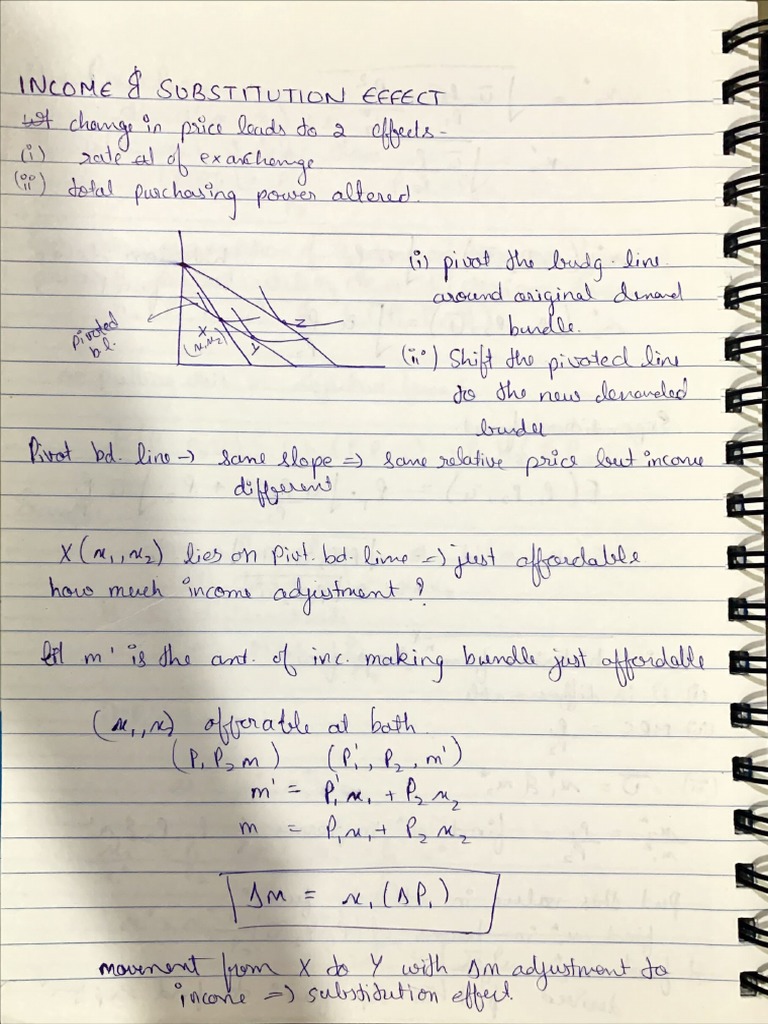 INCOME & SUBSTITUTION EFFECT
change in price leads to 2 effects -
(i) rate of exarchenge
(ii) total purchasing power altered.
(i) pivot the budg. line
around original demand
bundle.
(ii) Shift the pivoted line
to the new demanded
bundle
pivoted
b l.
X
(x₁,x₂)
Y
Z
Pivot bd. line → same slope ⇒ same relative price but income
different
X (x₁, x₂) lies on Pivt. bd. line ⇒ just affordable
how much income adjustment ?
m' is the amt. of inc. making bundle just affordable
(x₁, x) afforable at both
(P₁ P₂ m) (P₁', P₂, m')
m' = P₁'x₁ + P₂ x₂
m = P₁x₁ + P₂ x₂
Δm = x₁ (ΔP₁)
movement from X to Y with Δm adjustment to
income ⇒ substitution effect.